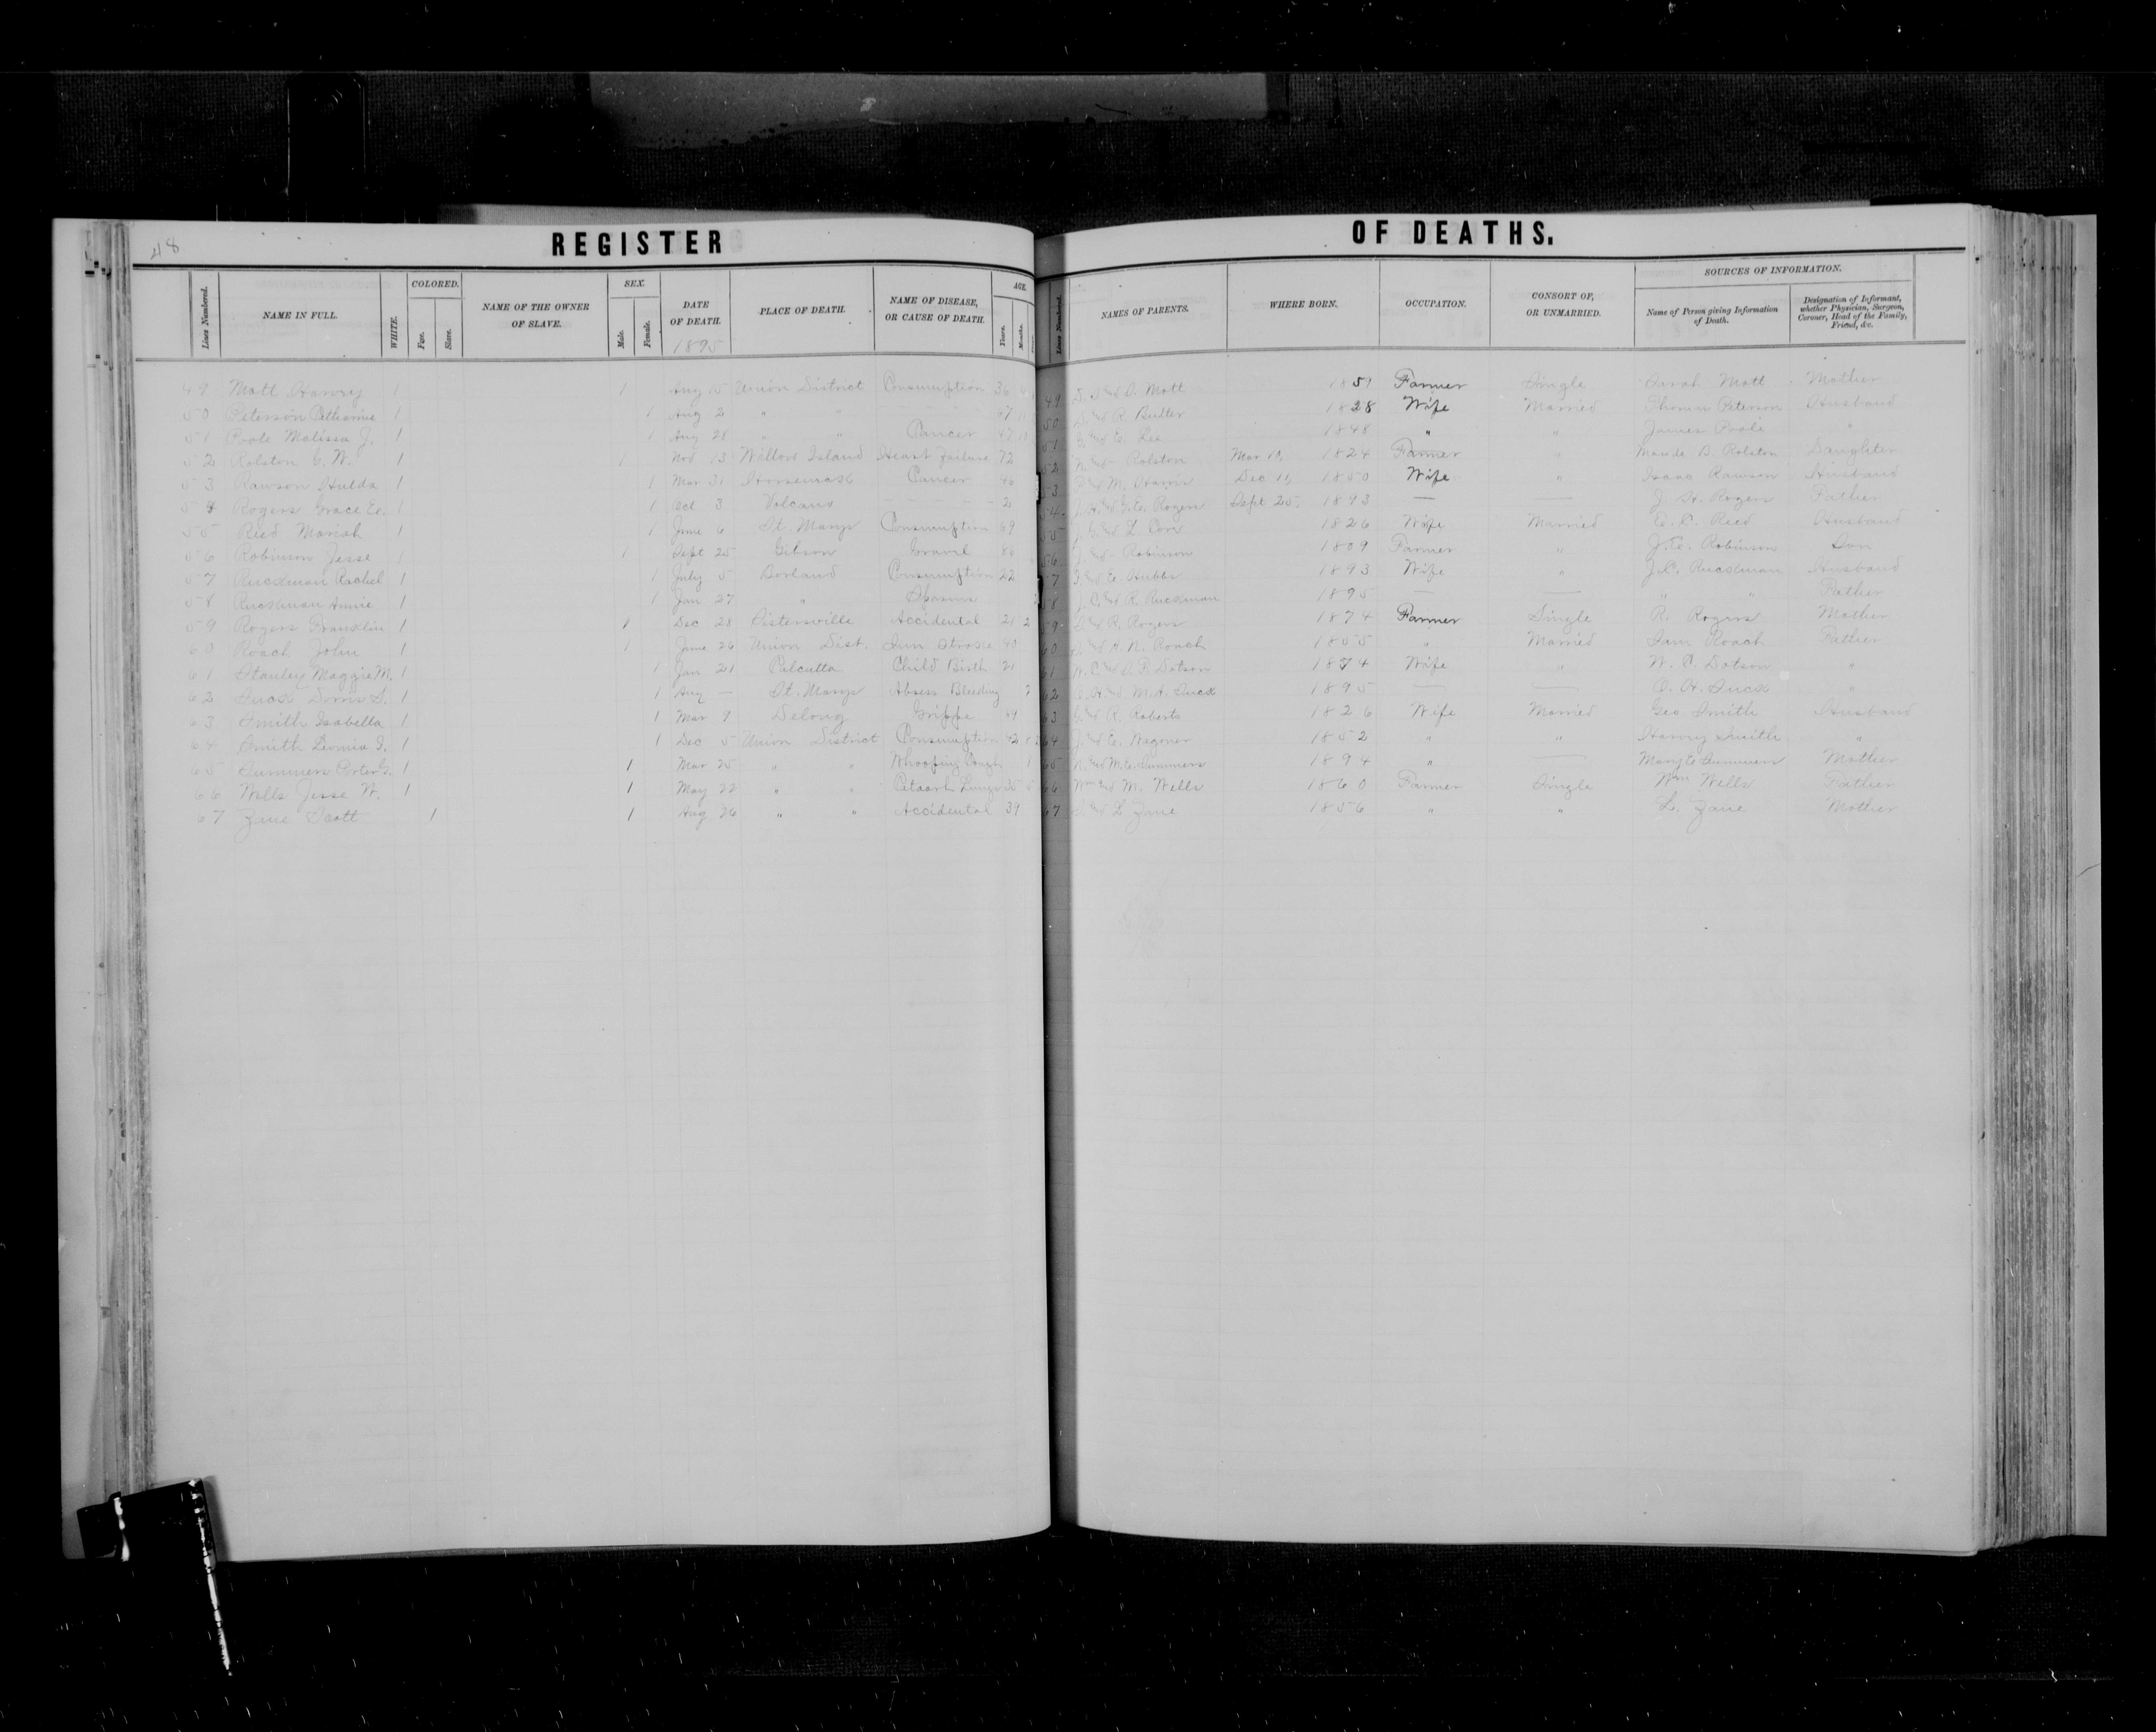 48
REGISTER OF DEATHS.
Lines Numbered. NAME IN FULL. WHITE. COLORED. Free. Slave. NAME OF THE OWNER OF SLAVE. SEX. Male. Female. DATE OF DEATH. 1895 PLACE OF DEATH. NAME OF DISEASE, OR CAUSE OF DEATH. AGE. Years. Months. Lines Numbered. NAMES OF PARENTS. WHERE BORN. OCCUPATION. CONSORT OF, OR UNMARRIED. SOURCES OF INFORMATION. Name of Person giving Information of Death. Designation of Informant, whether Physician, Surgeon, Coroner, Head of the Family, Friend, &c.
49 Mott Harvey 1 1 Aug 15 Union District Consumption 36 49 Mott 1859 Farmer Single Sarah Mott Mother
50 Peterson Catharine 1 1 Aug 2 " " 67 50 R. Butler 1828 Wife Married Thomas Peterson Husband
51 Poole Malissa J. 1 1 Aug 28 " " Cancer 47 51 Lee 1848 " " James Poole "
52 Rolston C. W. 1 1 Nov 13 Willow Island Heart Failure 72 52 Rolston Mar 10, 1824 Farmer " Maude B. Rolston Daughter
53 Rawson Hulda 1 1 Mar 31 Horseneck Cancer 46 53 M. Harris Dec 11, 1850 Wife " Isaac Rawson Husband
54 Rogers Grace E. 1 1 Oct 3 Volcano — 2 54 J. H. & J. E. Rogers Sept 25, 1893 — — J. H. Rogers Father
55 Reed Mariah 1 1 June 6 St. Marys Consumption 69 55 1826 Wife Married Reed Husband
56 Robinson Jesse 1 1 Sept 25 Gibson Gravel 86 56 Robinson 1809 Farmer " J. E. Robinson Son
57 Ruckman Rachel 1 1 July 5 Borland Consumption 22 57 E. Hubbs 1893 Wife " J. C. Ruckman Husband
58 Ruckman Annie 1 1 Jan 27 " Spasms 58 J. C. & R. Ruckman 1895 — — " " Father
59 Rogers Franklin 1 1 Dec 28 Sistersville Accidental 21 2 59 & R. Rogers 1874 Farmer Single R. Rogers Mother
60 Roach John 1 1 June 26 Union Dist. Sun stroke 40 60 Roach 1855 " Married Sam Roach Father
61 Stanley Maggie M. 1 1 Jan 21 Calcutta Child Birth 21 61 Dotson 1874 Wife " W. C. Dotson "
62 1 1 Aug — St. Marys Absess Bleeding 62 M. A. 1895 — — "
63 Smith Isabella 1 1 Mar 9 Delong Grippe 69 63 & R. Roberts 1826 Wife Married Geo Smith Husband
64 Smith 1 1 Dec 5 Union District Consumption 42 64 & E. Wagoner 1852 " " Harvey Smith "
65 Summers Porter G. 1 1 Mar 25 " " Whooping Cough 1 65 Summers 1894 " — Mary E Summers Mother
66 Wells Jesse W. 1 1 May 22 " " 35 66 Wm & M. Wells 1860 Farmer Single Wm Wells Father
67 Zane Scott 1 1 Aug 26 " " Accidental 39 67 & L. Zane 1856 " " L. Zane Mother